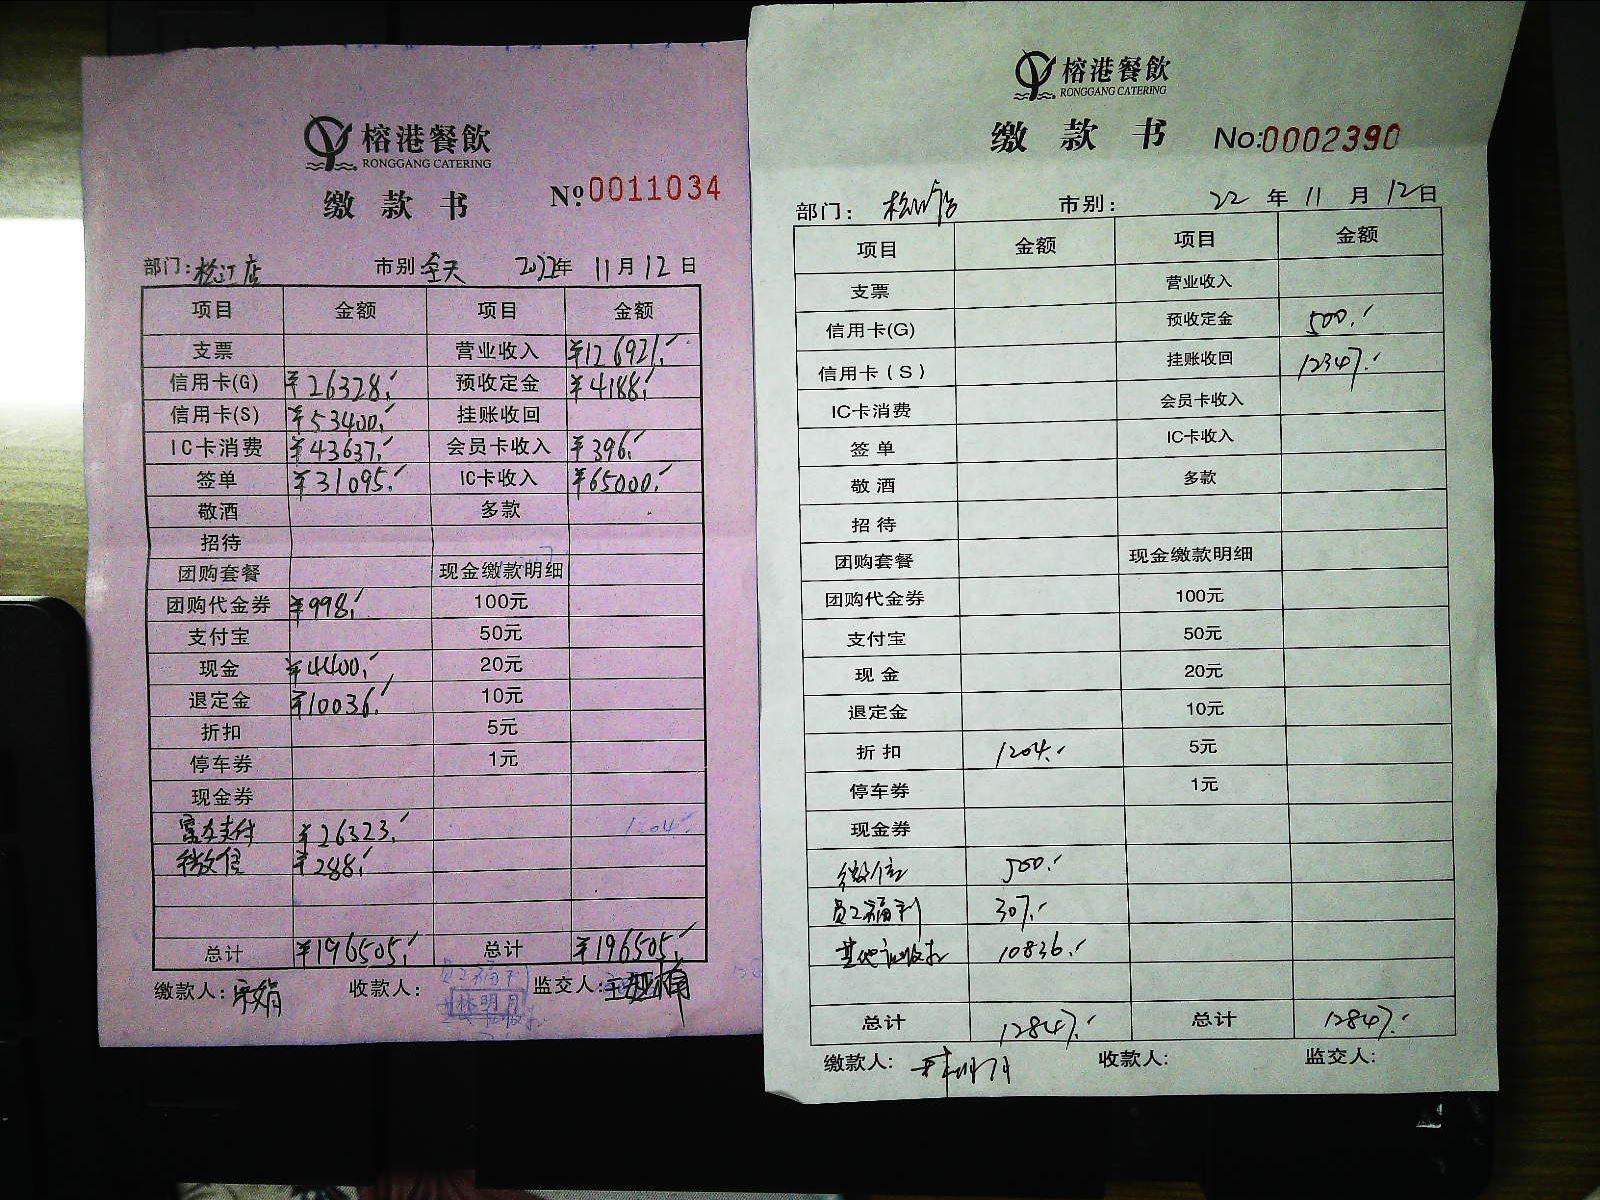 榕港餐飲
RONGGANG CATERING
缴款书
Nº 0011034
部门: 松江店 市别 全天 2022年 11月 12日
项目 金额 项目 金额
支票 营业收入 ¥126921.-
信用卡(G) ¥26328.- 预收定金 ¥4188.-
信用卡(S) ¥53400.- 挂账收回
IC卡消费 ¥43637.- 会员卡收入 ¥396.-
签单 ¥31095.- IC卡收入 ¥65000.-
敬酒 多款
招待
团购套餐 现金缴款明细
团购代金券 ¥998.- 100元
支付宝 50元
现金 ¥4400.- 20元
退定金 ¥10036.- 10元
折扣 5元
停车券 1元
现金券
支付 ¥26323.-
微信 ¥288.-
总计 ¥196505.- 总计 ¥196505.-
缴款人: 宋娟 收款人: 监交人:
林明月
榕港餐飲
RONGGANG CATERING
缴款书 No:0002390
部门: 松江店 市别: 22年 11月 12日
项目 金额 项目 金额
支票 营业收入
信用卡(G) 预收定金 500.-
信用卡(S) 挂账收回 12347.-
IC卡消费 会员卡收入
签单 IC卡收入
敬酒 多款
招待
团购套餐 现金缴款明细
团购代金券 100元
支付宝 50元
现金 20元
退定金 10元
折扣 1204.- 5元
停车券 1元
现金券
微信 500.-
员工福利 307.-
其他应收款 10836.-
总计 12847.- 总计 12847.-
缴款人: 林明月 收款人: 监交人: